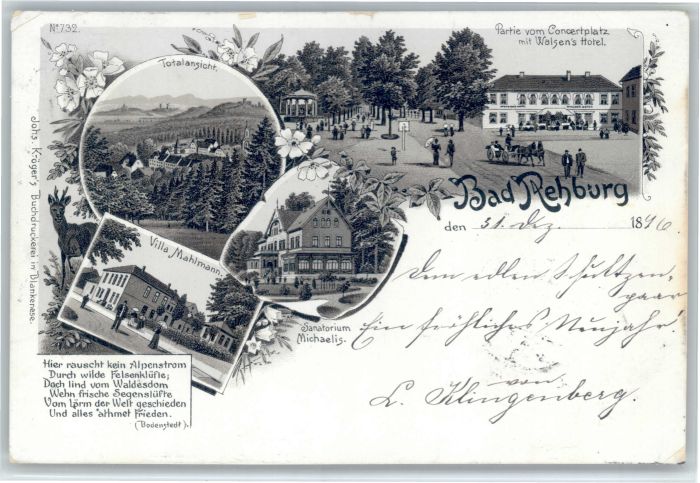 No. 732.
Totalansicht.
Partie vom Concertplatz
mit Walsen's Hotel.
Bad Rehburg
den 31. Dez. 1896
Dem edlen Schultzen-
paar
Ein fröhliches Neujahr!
von
L. Klingenberg.
Villa Mahlmann.
Sanatorium
Michaelis.
Johs. Kröger's Buchdruckerei in Blankenese.
Hier rauscht kein Alpenstrom
Durch wilde Felsenklüfte;
Doch lind vom Waldesdom
Wehn frische Segenslüfte
Vom Lärm der Welt geschieden
Und alles athmet Frieden.
(Bodenstedt).